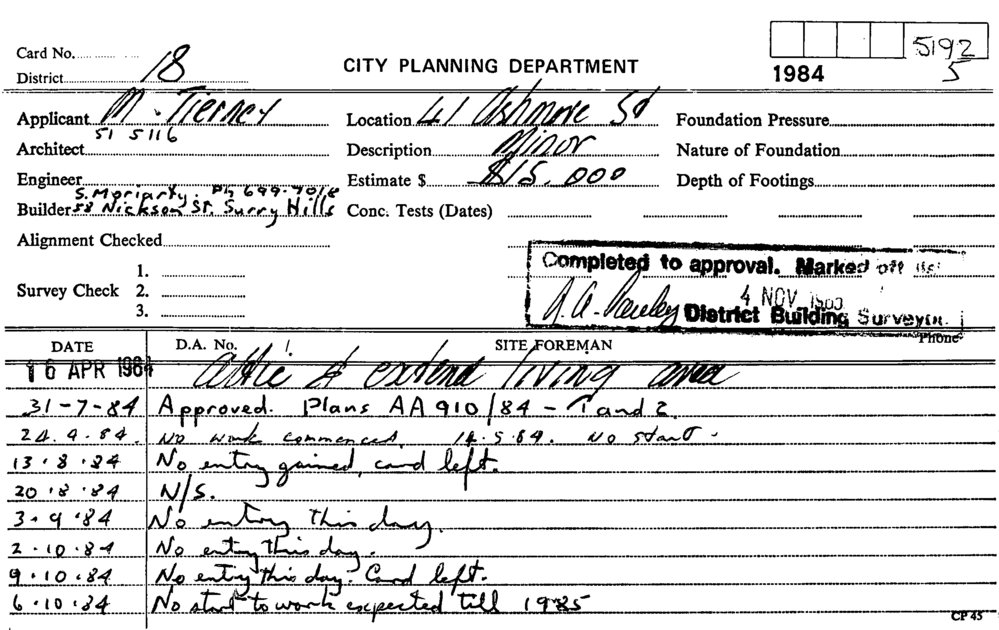 Card No.
5192
District 18
CITY PLANNING DEPARTMENT
1984
5
Applicant M. Tierney
Location 41 Ashmore St
Foundation Pressure
51 5116
Architect
Description Minor
Nature of Foundation
Engineer
Estimate $ $15,000
Depth of Footings
S. Moriarty. Ph 699-7018
Builder 58 Nickson St. Surry Hills
Conc. Tests (Dates)
Alignment Checked
Survey Check
1.
2.
3.
Completed to approval. Marked off
4 NOV
District Building Surveyor.
Phone
DATE
D.A. No.
SITE FOREMAN
16 APR 1984 Attic & extend living area
31-7-84 Approved. Plans AA910/84 - 1 and 2.
24.4.84. No work commenced. 14.5.84. No start.
13.8.84 No entry gained, card left.
20.8.84 N/S.
3.9.84 No entry this day.
2.10.84 No entry this day.
9.10.84 No entry this day. Card left.
6.10.84 No start to work expected till 1985
CP 45